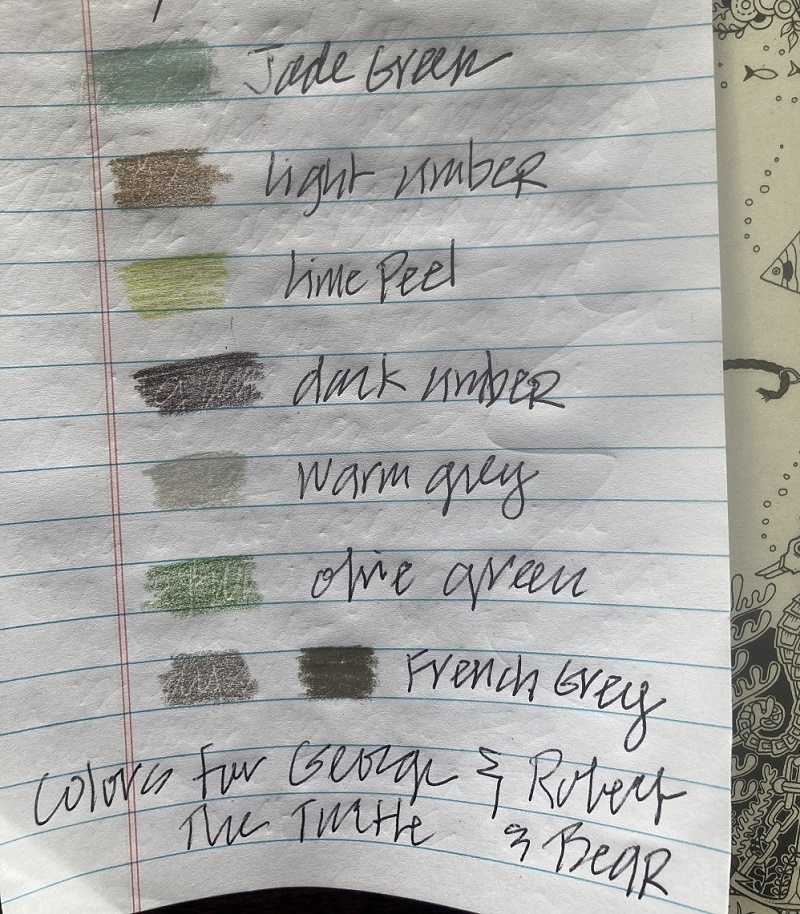 Jade Green
light umber
lime Peel
dark umber
warm grey
olive green
French Grey
Colors for George & Robert
The Turtle & Bear